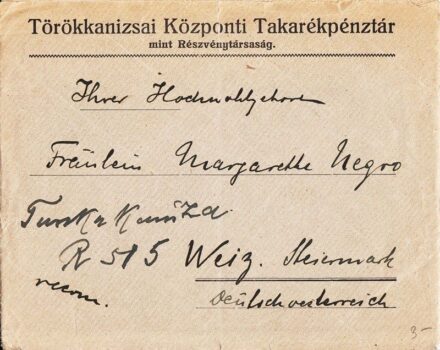 Törökkanizsai Központi Takarékpénztár
mint Részvénytársaság.
Ihrer Hochwohlgeboren
Fräulein Margarethe Negro
Turska Kaniza
R 515 Weiz. Steiermark
recom.
Deutschoesterreich
3-